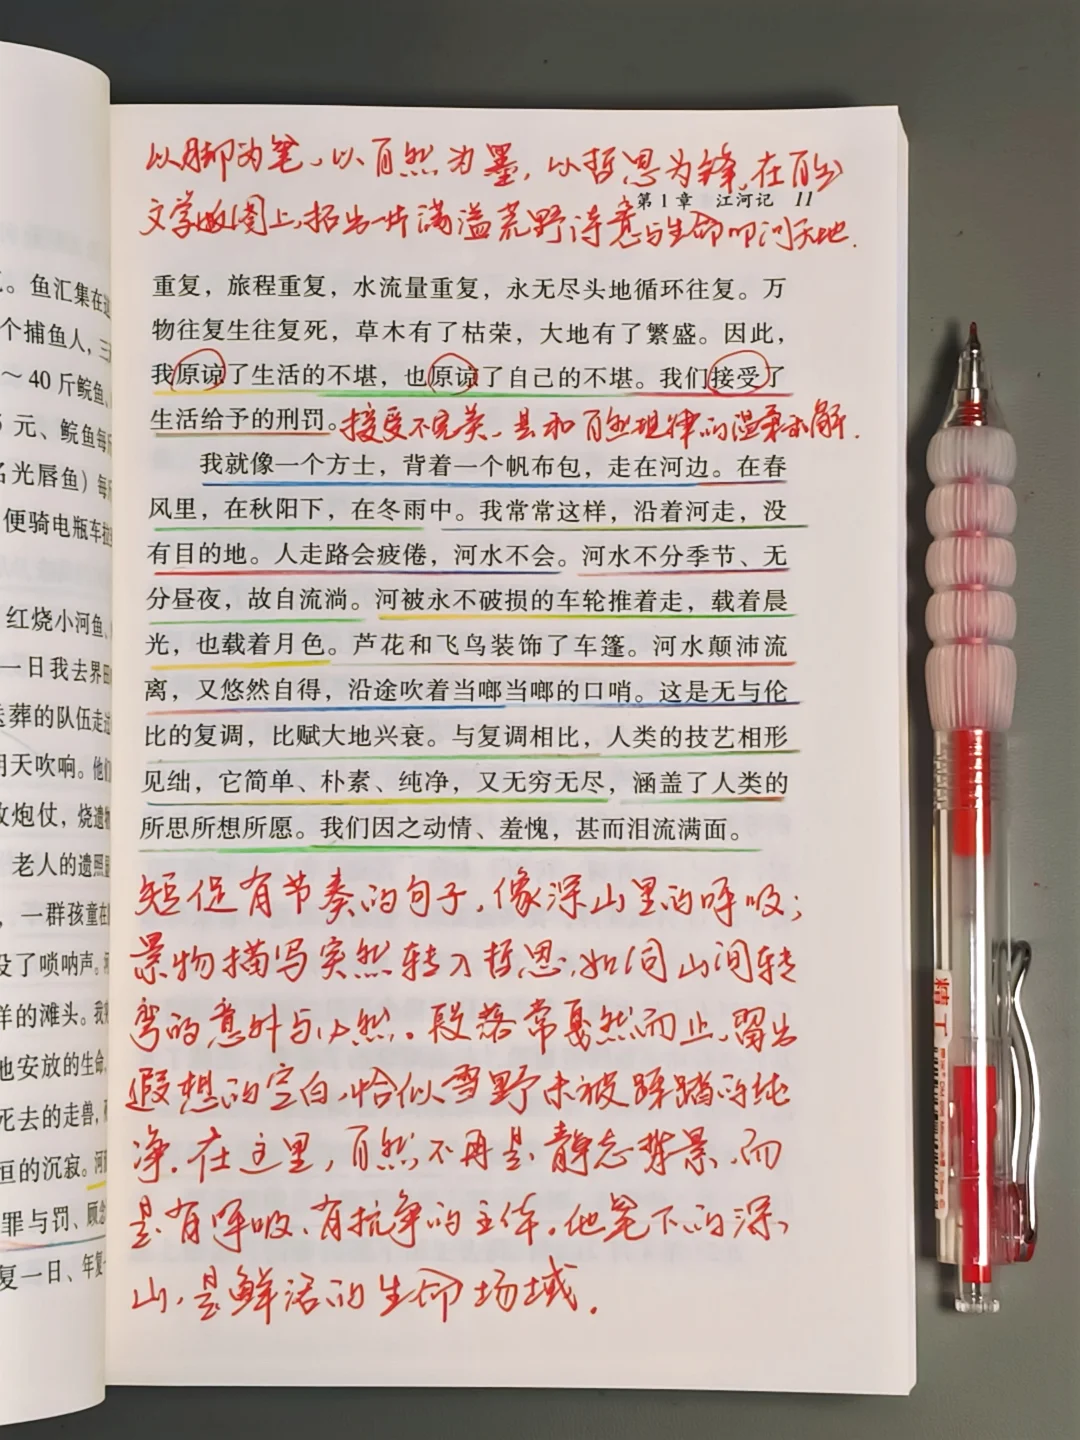 。鱼汇集在这
个捕鱼人，三
～40斤鲩鱼、
元、鲩鱼每斤
名光唇鱼）每
便骑电瓶车拉
红烧小河鱼、
一日我去界田
送葬的队伍走过
明天吹响。他们
放炮仗，烧遗物
老人的遗照
，一群孩童在
没了唢呐声。河
样的滩头。我
他安放的生命、
死去的走兽，
恒的沉寂。河
罪与罚、顾念
复一日、年复一
以脚为笔、以自然为墨，以哲思为锋，在自然
第1章 江河记 11
文学版图上，拓出一片满溢荒野诗意与生命叩问天地.
重复，旅程重复，水流量重复，永无尽头地循环往复。万
物往复生往复死，草木有了枯荣，大地有了繁盛。因此，
我原谅了生活的不堪，也原谅了自己的不堪。我们接受了
生活给予的刑罚。接受不完美，是和自然规律的温柔和解.
我就像一个方士，背着一个帆布包，走在河边。在春
风里，在秋阳下，在冬雨中。我常常这样，沿着河走，没
有目的地。人走路会疲倦，河水不会。河水不分季节、无
分昼夜，故自流淌。河被永不破损的车轮推着走，载着晨
光，也载着月色。芦花和飞鸟装饰了车篷。河水颠沛流
离，又悠然自得，沿途吹着当啷当啷的口哨。这是无与伦
比的复调，比赋大地兴衰。与复调相比，人类的技艺相形
见绌，它简单、朴素、纯净，又无穷无尽，涵盖了人类的
所思所想所愿。我们因之动情、羞愧，甚而泪流满面。
短促有节奏的句子，像深山里的呼吸；
景物描写突然转入哲思，如同山间转
弯的意外与必然。段落常戛然而止，留出
遐想的空白，恰似雪野未被踩踏的纯
净。在这里，自然不再是静态背景，而
是有呼吸、有抗争的主体。他笔下的深
山，是鲜活的生命场域.
精工